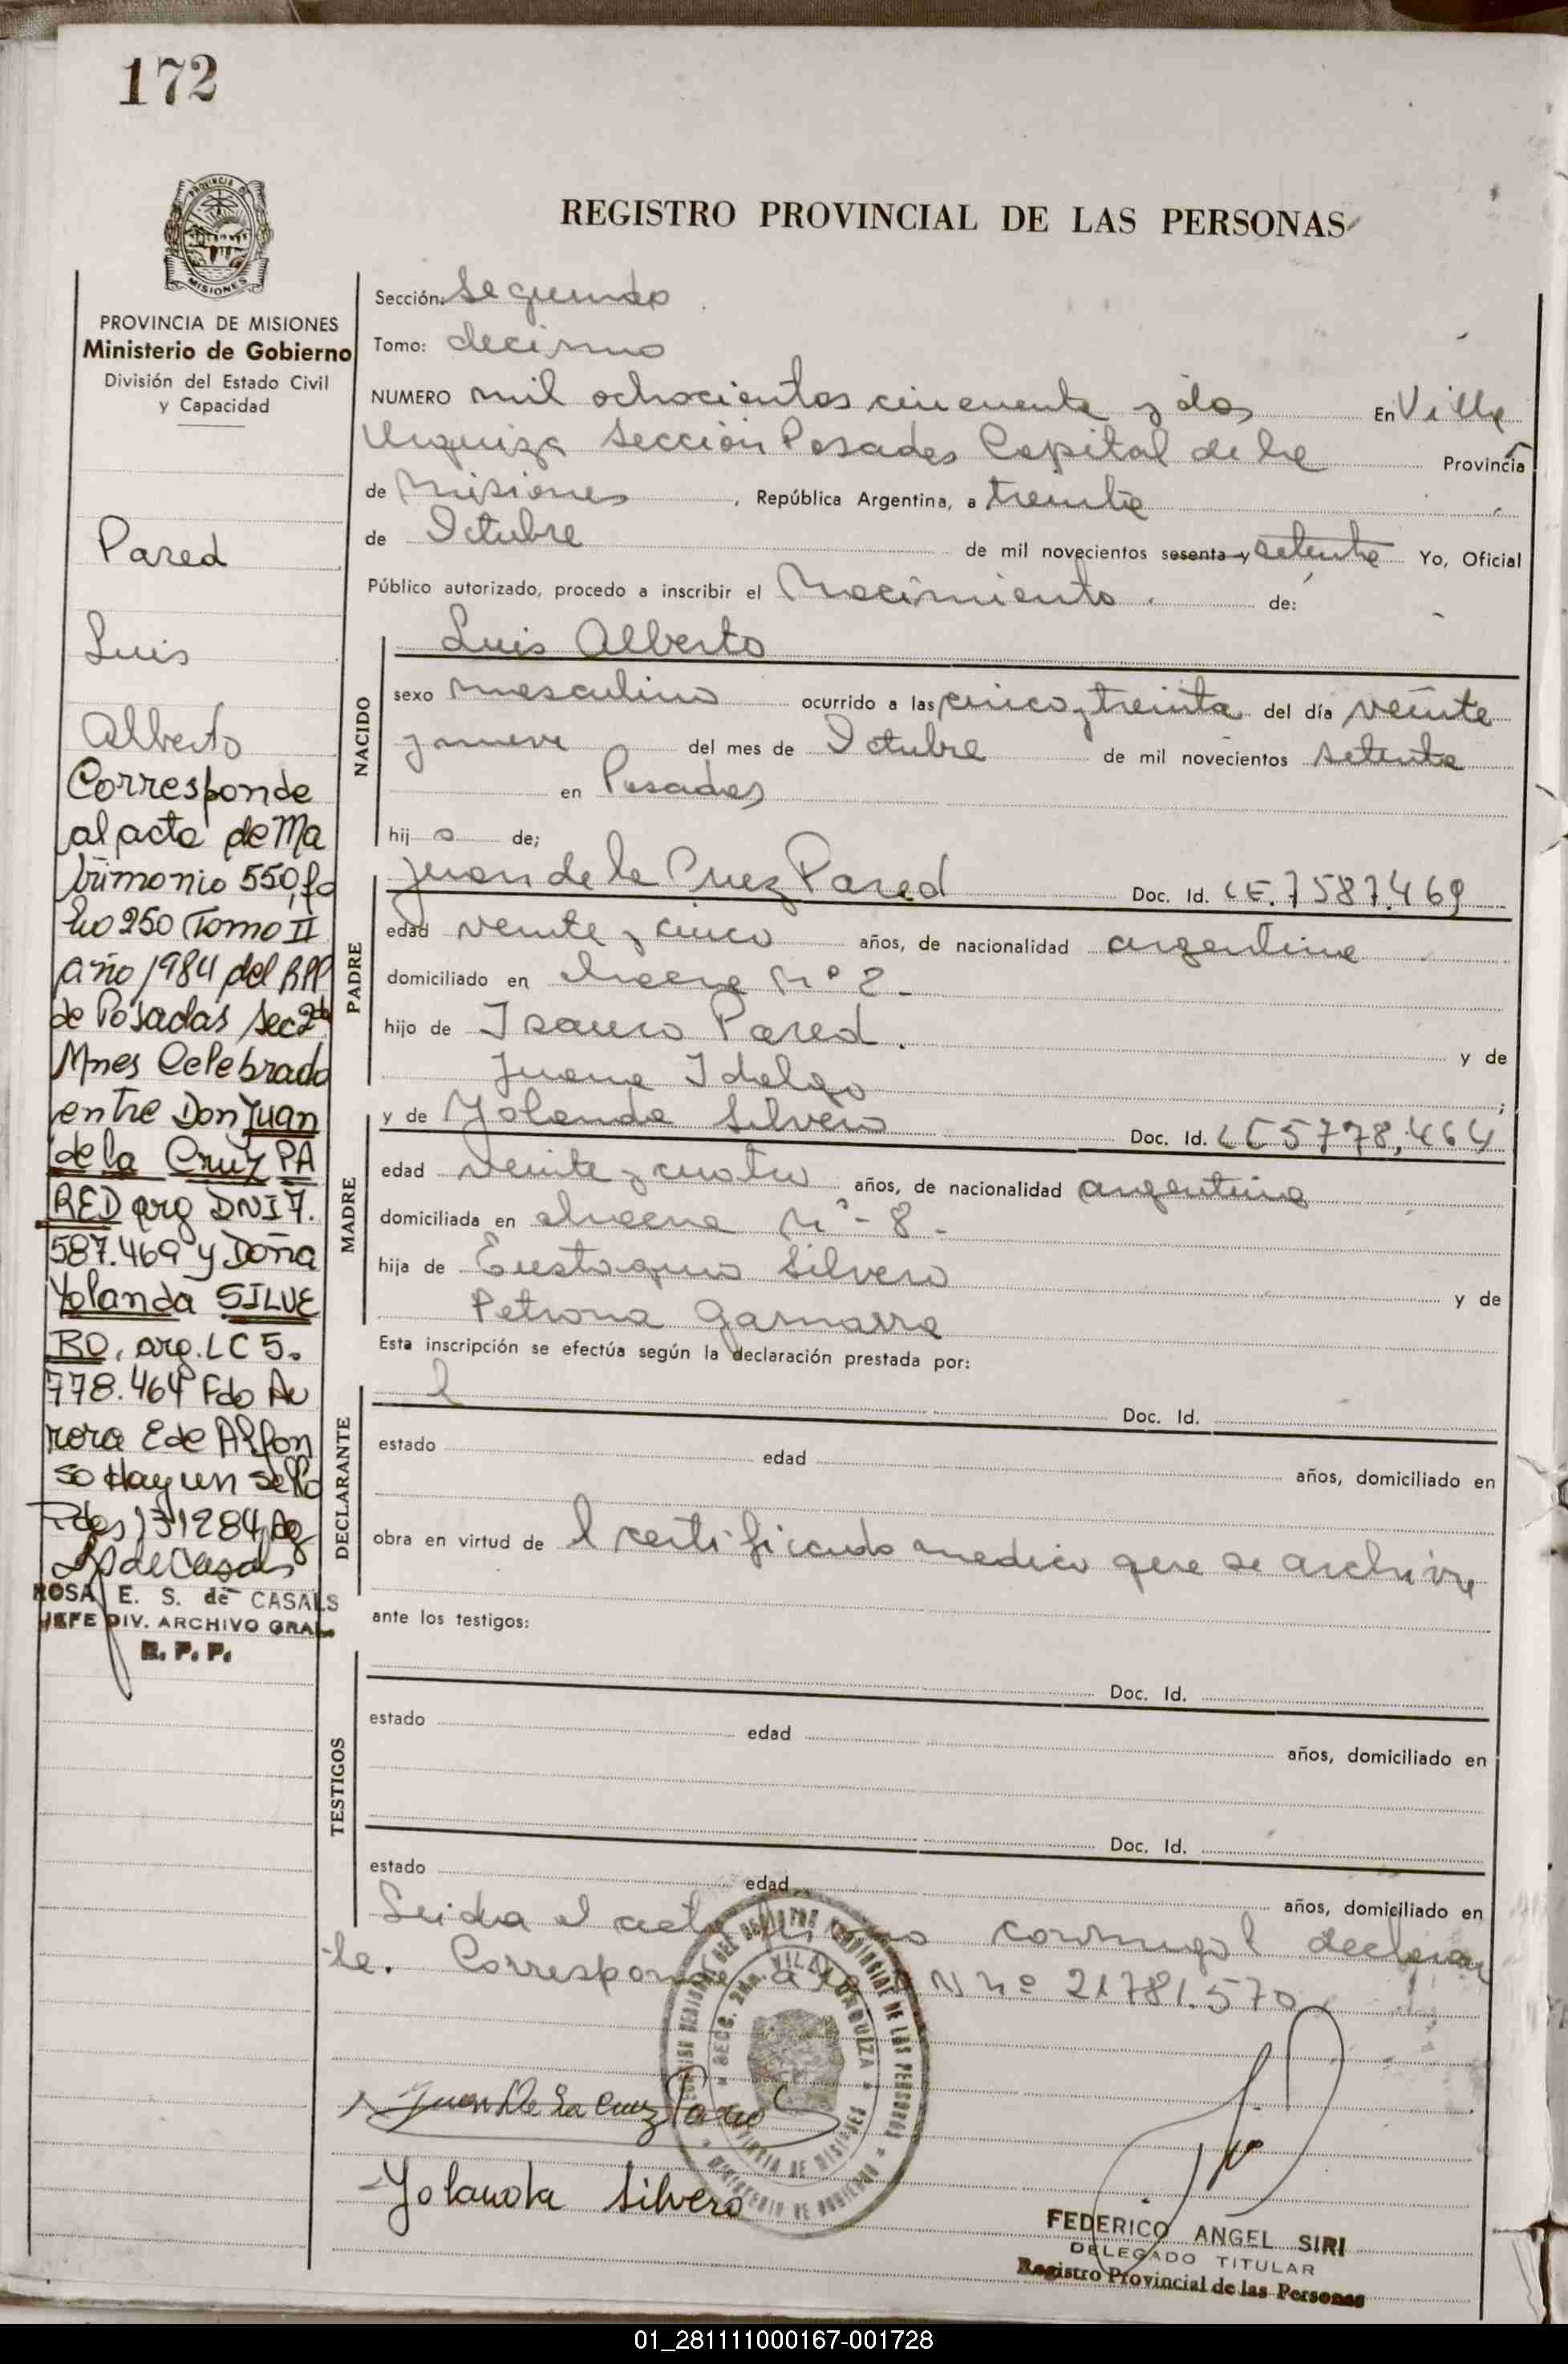 172
PROVINCIA DE MISIONES
PROVINCIA DE MISIONES
Ministerio de Gobierno
División del Estado Civil
y Capacidad
Pared
Luis
Alberto
Corresponde
al acta de Ma
trimonio 550, fo
lio 250 Tomo II
año 1984 del RPP
de Posadas Sec 2da
Mnes Celebrado
entre Don Juan
de la Cruz PA
RED arg DNI 7.
587.469 y Doña
Yolanda SILVE
RO, arg. LC 5.
778.464 Fdo Au
rora E de Alfon
so Hay un sello
Pdas 131284
ROSA E. S. de CASALS
JEFE DIV. ARCHIVO GRAL.
R. P. P.
REGISTRO PROVINCIAL DE LAS PERSONAS
Sección: segundo
Tomo: decimo
NUMERO mil ochocientos cincuenta y dos En Villa
Urquiza Sección Posadas Capital de la Provincia
de Misiones, República Argentina, a treinta
de Octubre de mil novecientos sesenta y setenta Yo, Oficial
Público autorizado, procedo a inscribir el Nacimiento. de:
NACIDO
Luis Alberto
sexo masculino ocurrido a las cinco y treinta del día veinte
y nueve del mes de Octubre de mil novecientos setenta
en Posadas
hijo de;
PADRE
Juan de la Cruz Pared Doc. Id. LE. 7587.469
edad veinte y cinco años, de nacionalidad argentina
domiciliado en chacra nº 2-
hijo de Isauro Pared. y de
Juana Idalgo ;
MADRE
y de Yolanda Silvero Doc. Id. LC 5778.464
edad veinte y cuatro años, de nacionalidad argentina
domiciliada en chacra nº - 8-
hija de Eustaquio Silvero y de
Petrona Gamarra
Esta inscripción se efectúa según la declaración prestada por:
DECLARANTE
Doc. Id.
estado edad años, domiciliado en
obra en virtud de l certificado medico que se archiva
ante los testigos:
TESTIGOS
Doc. Id.
estado edad años, domiciliado en
Doc. Id.
estado edad años, domiciliado en
Leida el acta conmigo l declaran
te. Corresponde Nº 21.781.570
SECC. 2da. VILLA URQUIZA
PROVINCIA DE MISIONES
MINISTERIO DE GOBIERNO
REGISTRO PROVINCIAL DE LAS PERSONAS
Juan De La Cruz Pared
Yolanda Silvero
FEDERICO ANGEL SIRI
DELEGADO TITULAR
Registro Provincial de las Personas
01_281111000167-001728